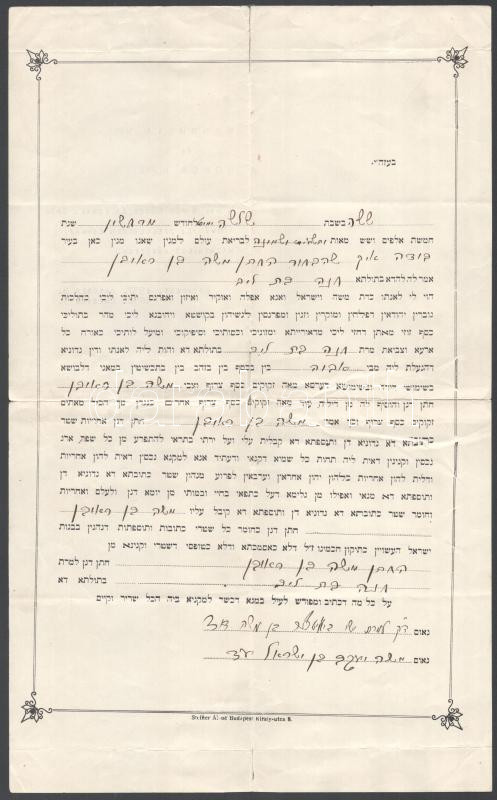 בעזהי״
ששה בשבת שלשה ימים לחודש מרחשון שנת
חמשת אלפים ושש מאות ושלשים ושמונה לבריאת עולם למנין שאנו מנין כאן בעיר
איך שהבחור החתן משה בן ראובן
אמר לה להדא בתולתא חנה בת ליב
הוי לי לאנתו כדת משה וישראל ואנא אפלח ואוקיר ואיזון ואפרנס יתיכי ליכי כהלכות
גוברין יהודאין דפלחין ומוקרין וזנין ומפרנסין לנשיהון בקושטא ויהיבנא ליכי מהר בתוליכי
כסף זוזי מאתן דחזי ליכי מדאורייתא ומזוניכי וכסותיכי וסיפוקיכי ומיעל לותיכי כאורח כל
ארעא וצביאת מרת חנה בת ליב בתולתא דא והות ליה לאנתו ודין נדוניא
דהנעלת ליה מבי אבוה בין בכסף בין בזהב בין בתכשיטין במאני דלבושא
בשימושי דירה ובשימושא דערסא מאה זקוקים כסף צרוף וצבי משה בן ראובן
חתן דנן והוסיף לה מן דיליה עוד מאה זקוקים כסף צרוף אחרים כנגדן סך הכל מאתים
זקוקים כסף צרוף וכך אמר משה בן ראובן חתן דנן אחריות שטר
כתובתא דא נדוניא דן ותוספתא דא קבלית עלי ועל ירתי בתראי להתפרע מן כל שפר ארג
נכסין וקנינין דאית ליה תחות כל שמיא דקנאי ודעתיד אנא למקנא נכסין דאית להון אחריות
ודלית להון אחריות כלהון יהון אחראין וערבאין לפרוע מנהון שטר כתובתא דא נדוניא דן
ותוספתא דא מנאי ואפילו מן גלימא דעל כתפאי בחיי ובמותי מן יומא דנן ולעלם ואחריות
וחומר שטר כתובתא דא נדוניא דן ותוספתא דא קיבל עליו משה בן ראובן
חתן דנן כחומר כל שטרי כתובות ותוספתות דנהגין בבנות
ישראל העשויין כתיקון חכמינו ז״ל דלא כאסמכתא ודלא כטופסי דשטרי וקנינא מן
החתן משה בן ראובן חתן דנן למרת
חנה בת ליב בתולתא דא
על כל מה דכתוב ומפורש לעיל במנא דכשר למקניא ביה הכל שריר וקים
נאום בן משה עד
נאום משה יעקב בן ישראל עד
Budapest Király-utca 8.